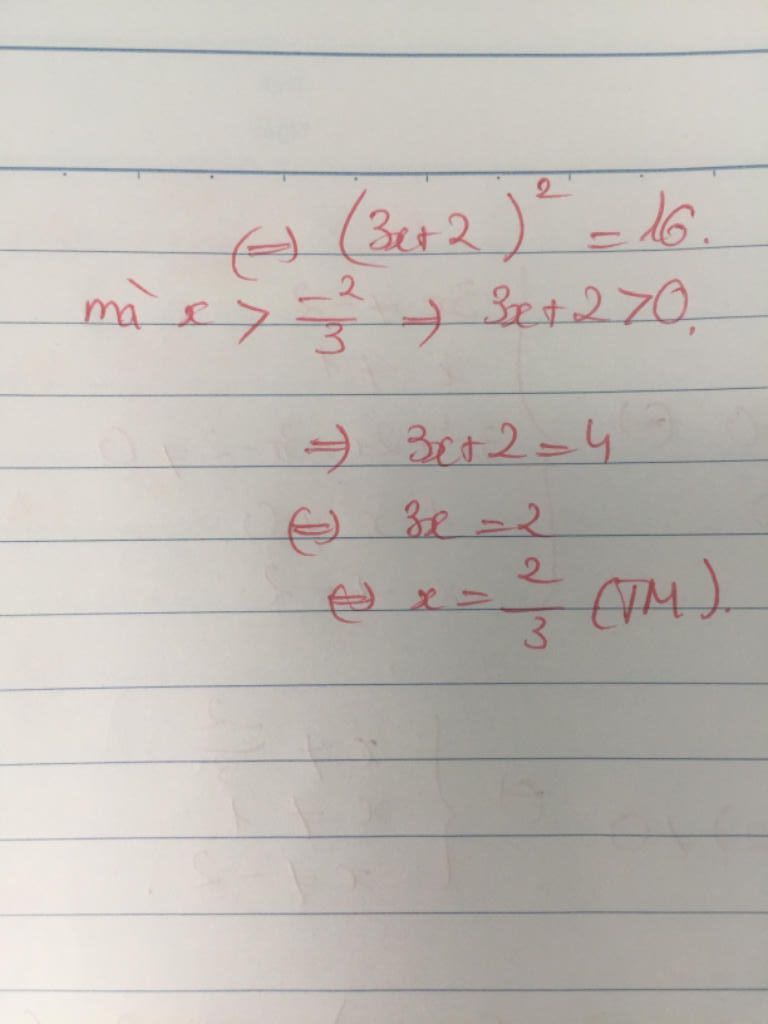 (=) (3x+2)² = 16.
mà x > -2/3 => 3x+2>0.
=> 3x+2=4
<=> 3x=2
<=> x=2/3 (TM).